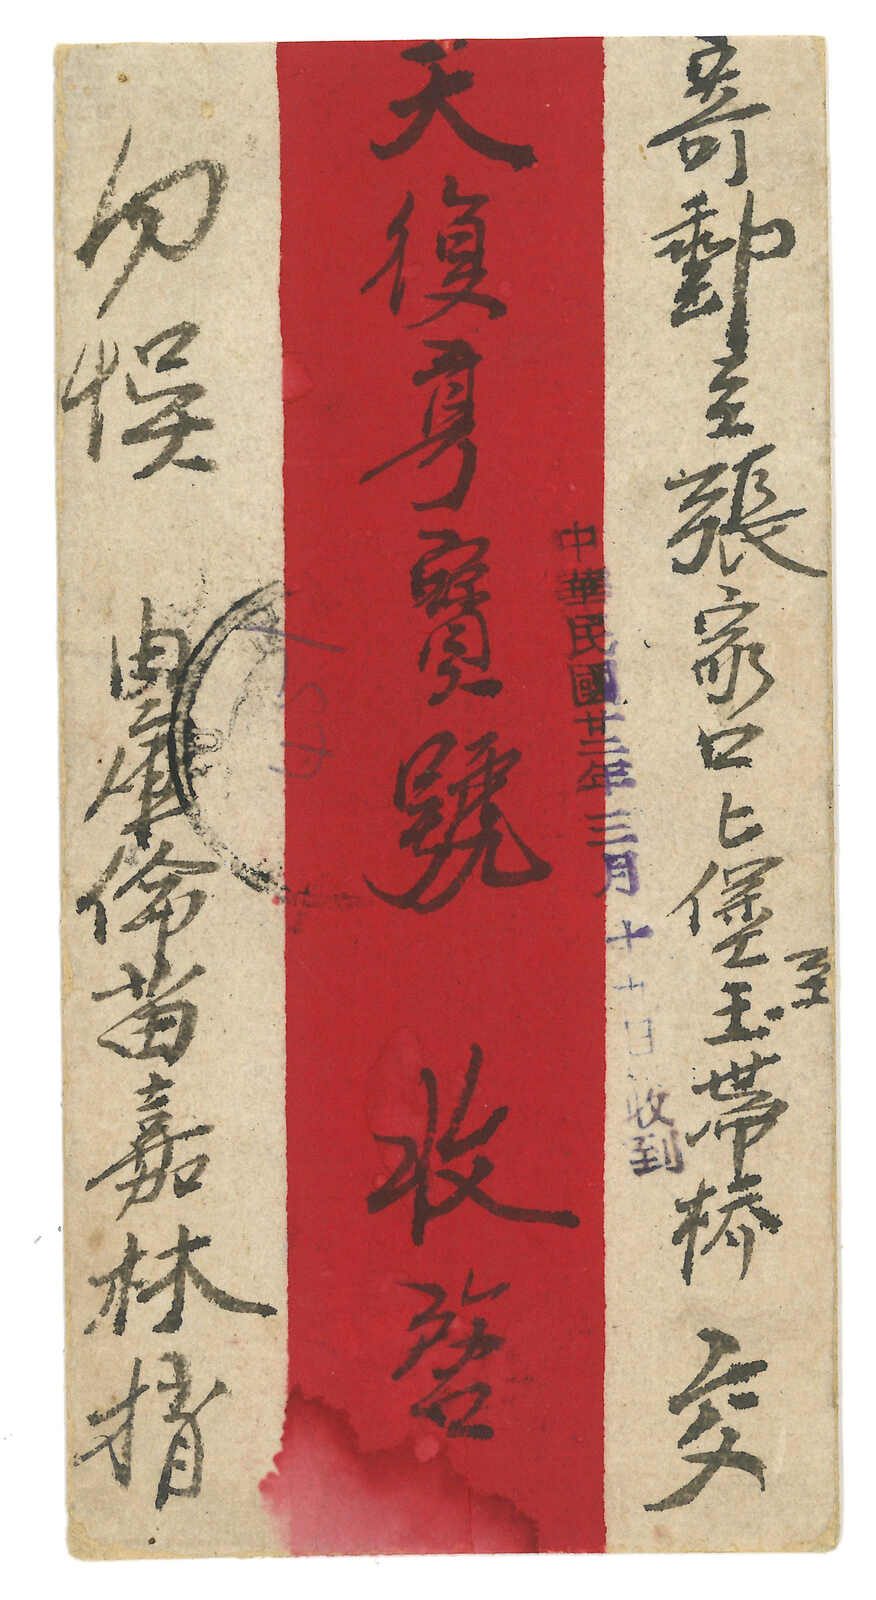 寄郵至張家口上堡玉帶橋 交
至
天復亨寶號 收啓
中華民國廿三年三月十七日收到
勿悮 由庫倫苗嘉林捎